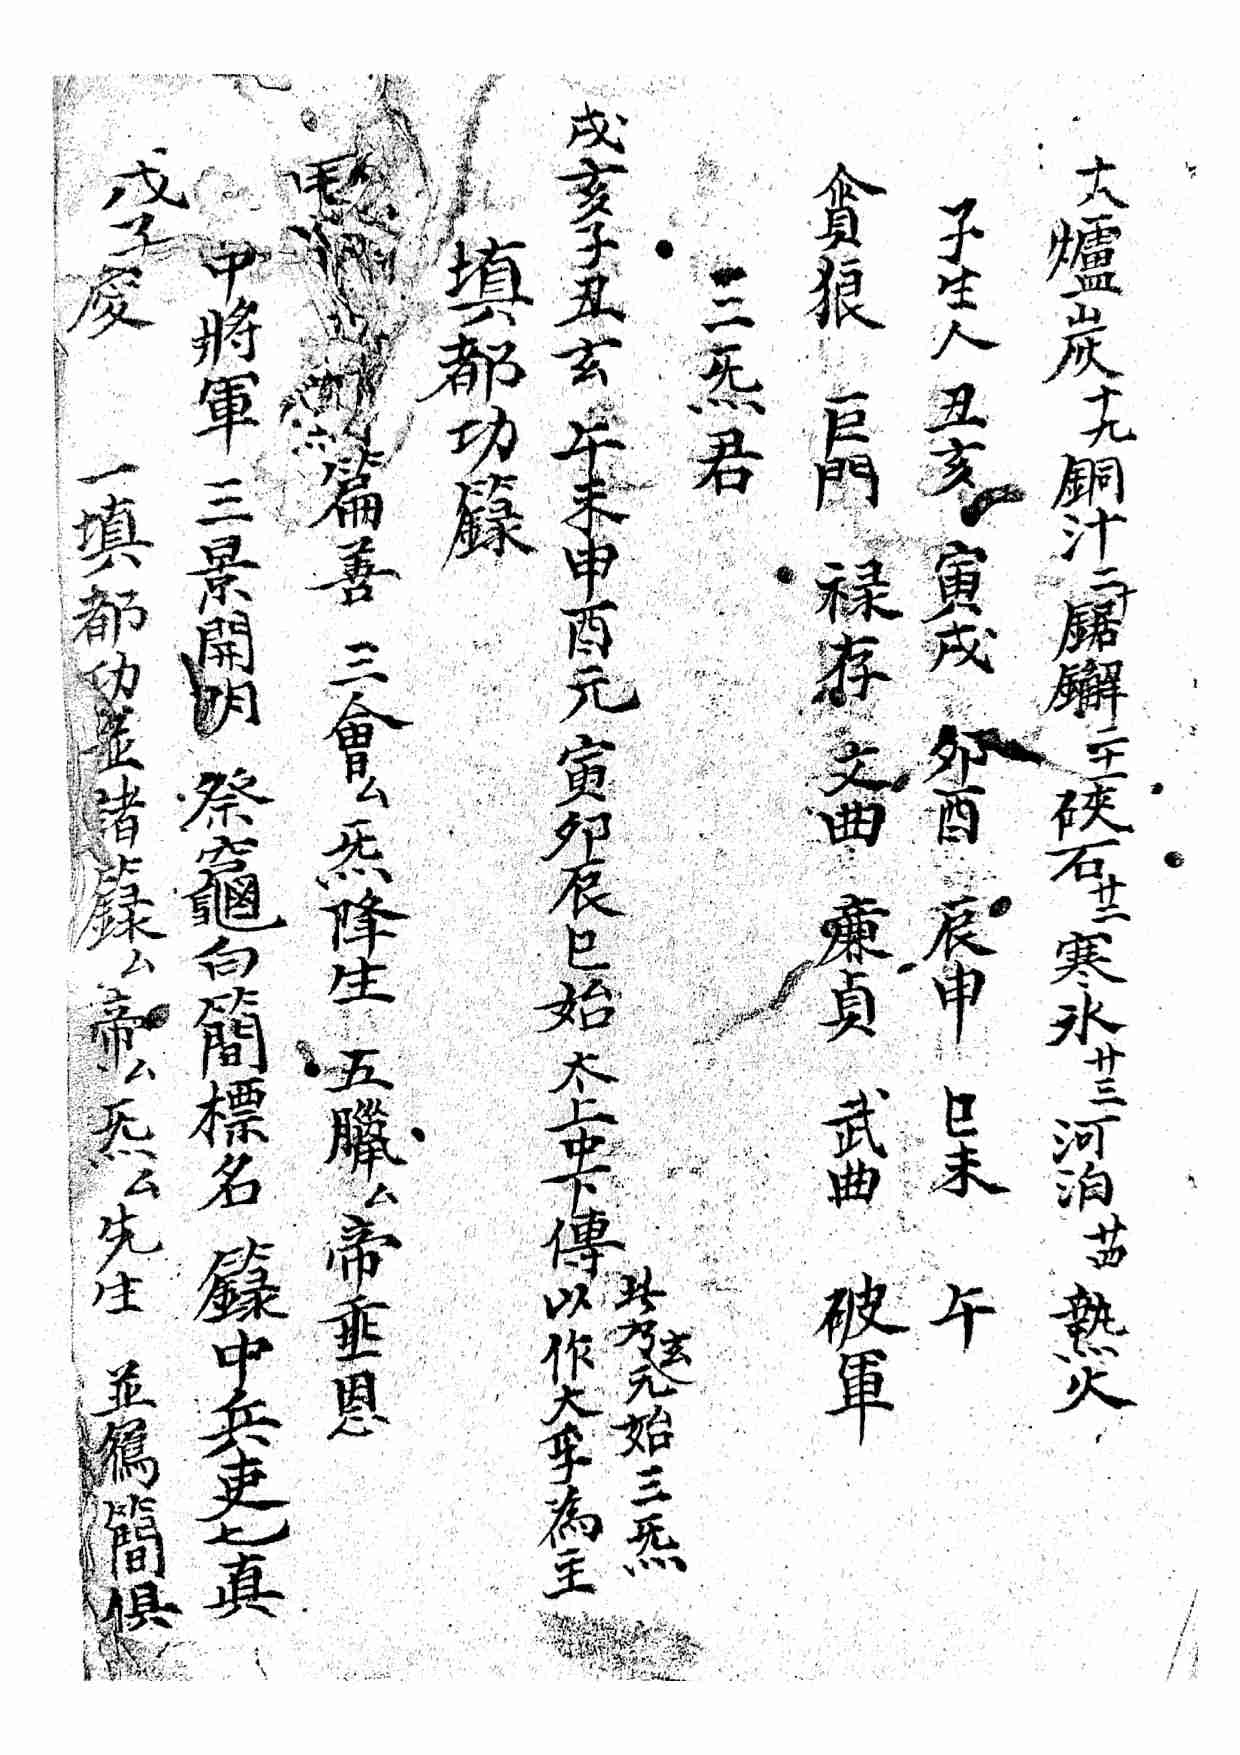 十八爐炭十九銅汁二十鋸鑃二十一硤石廿二寒氷廿三河泊廿四熱火
子生人丑亥寅戌卯酉辰申巳未午
貪狼巨門禄存文曲廉貞武曲破軍
三炁君
戌亥子丑玄午未申酉元寅卯辰巳始太上中下傳以作大孚為主
此乃玄元始三炁
填都功籙
篇善三會厶炁降生五臘厶帝垂恩
中將軍三景開明祭竈白簡標名籙中兵吏七真
戊子慶
一填都功並諸籙厶帝厶炁厶先生並爲簡俱